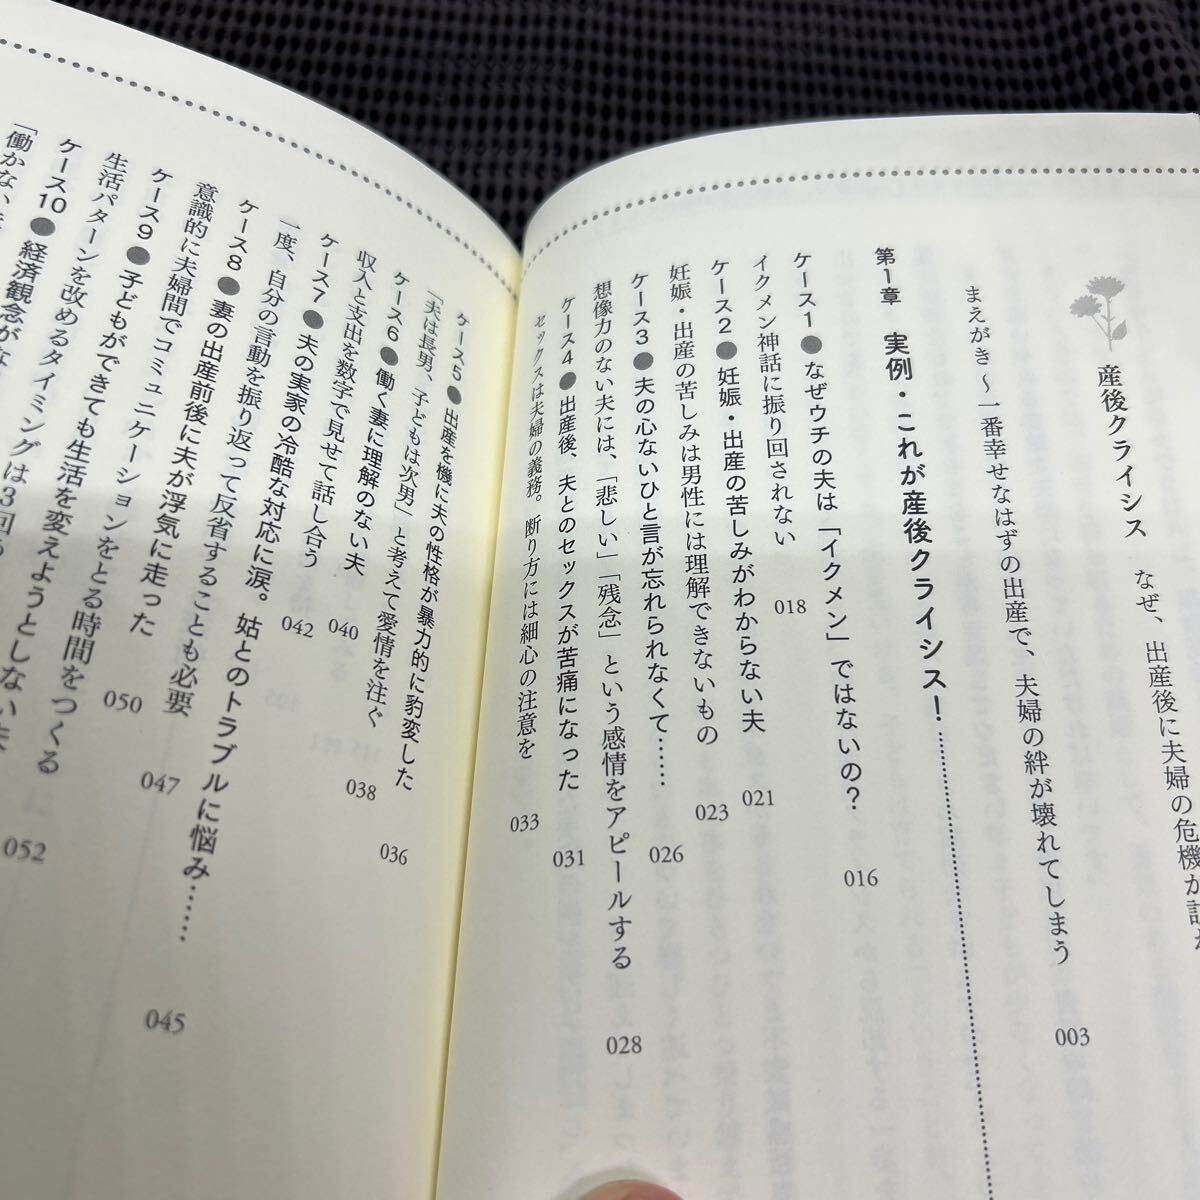 産後クライシス なぜ、出産後に夫婦の危機が
まえがき～一番幸せなはずの出産で、夫婦の絆が壊れてしまう 003
第1章 実例・これが産後クライシス！
ケース1●なぜウチの夫は「イクメン」ではないの？ 016
イクメン神話に振り回されない 018
ケース2●妊娠・出産の苦しみがわからない夫 021
妊娠・出産の苦しみは男性には理解できないもの 023
ケース3●夫の心ないひと言が忘れられなくて…… 026
想像力のない夫には、「悲しい」「残念」という感情をアピールする 028
ケース4●出産後、夫とのセックスが苦痛になった 031
セックスは夫婦の義務。断り方には細心の注意を 033
ケース5●出産を機に夫の性格が暴力的に豹変した 036
「夫は長男、子どもは次男」と考えて愛情を注ぐ 038
ケース6●働く妻に理解のない夫 040
収入と支出を数字で見せて話し合う 042
ケース7●夫の実家の冷酷な対応に涙。姑とのトラブルに悩み…… 045
一度、自分の言動を振り返って反省することも必要 047
ケース8●妻の出産前後に夫が浮気に走った 050
意識的に夫婦間でコミュニケーションをとる時間をつくる 052
ケース9●子どもができても生活を変えようとしない夫
生活パターンを改めるタイミングは3回
ケース10●経済観念がな
「働かない